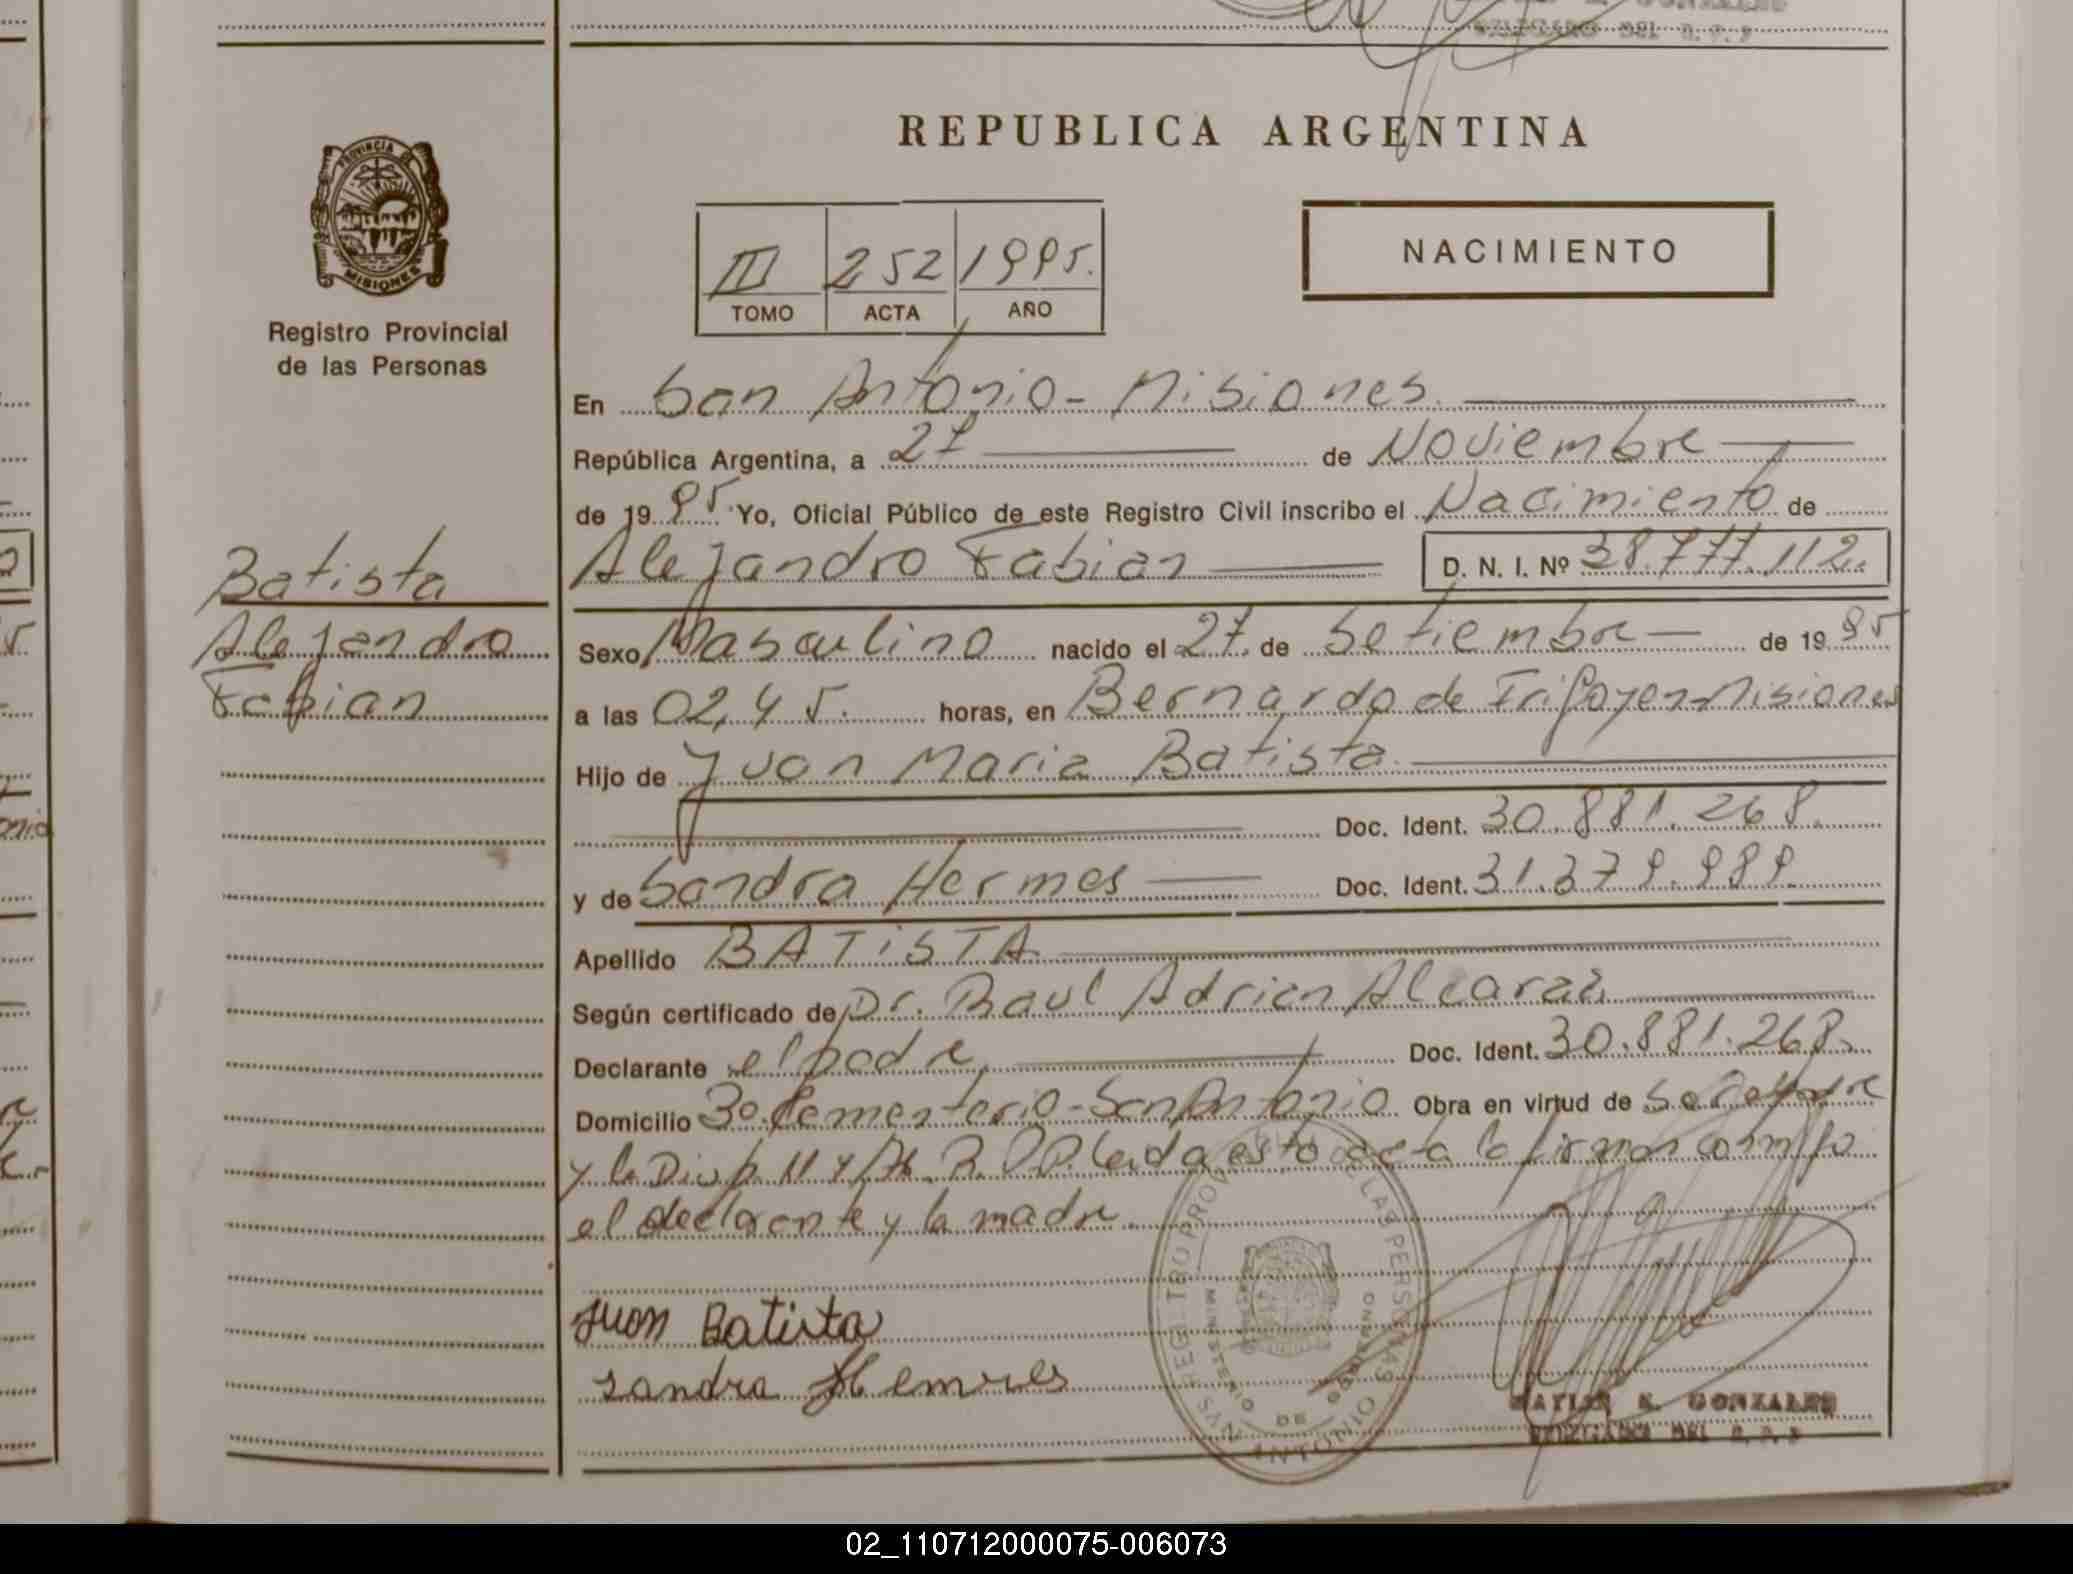 REPUBLICA ARGENTINA
PROVINCIA DE
MISIONES
Registro Provincial
de las Personas
III 252 1995.
TOMO ACTA AÑO
NACIMIENTO
En San Antonio - Misiones
República Argentina, a 27 de Noviembre
de 1995 Yo, Oficial Público de este Registro Civil inscribo el Nacimiento de
Alejandro Fabian D. N. I. Nº 38.777.112.
Batista
Alejandro
Fabian
Sexo Masculino nacido el 27 de Setiembre de 1995
a las 02,45. horas, en Bernardo de Irigoyen-Misiones
Hijo de Juan Maria Batista
Doc. Ident. 30.881.268.
y de Sandra Hermes Doc. Ident. 31.379.989.
Apellido BATISTA
Según certificado de Dr. Raul Adrian Alcaraz
Declarante el padre Doc. Ident. 30.881.268.
Domicilio Bo. Cementerio-San Antonio Obra en virtud de ser padre
y la Leida esta acta la firman conmigo
el declarante y la madre.
Juan Batista
Sandra Hemres
REGISTRO PROVINCIAL DE LAS PERSONAS
MINISTERIO DE GOBIERNO
SAN ANTONIO
GONZALES
DELEGADO DEL R. P. P
02_110712000075-006073